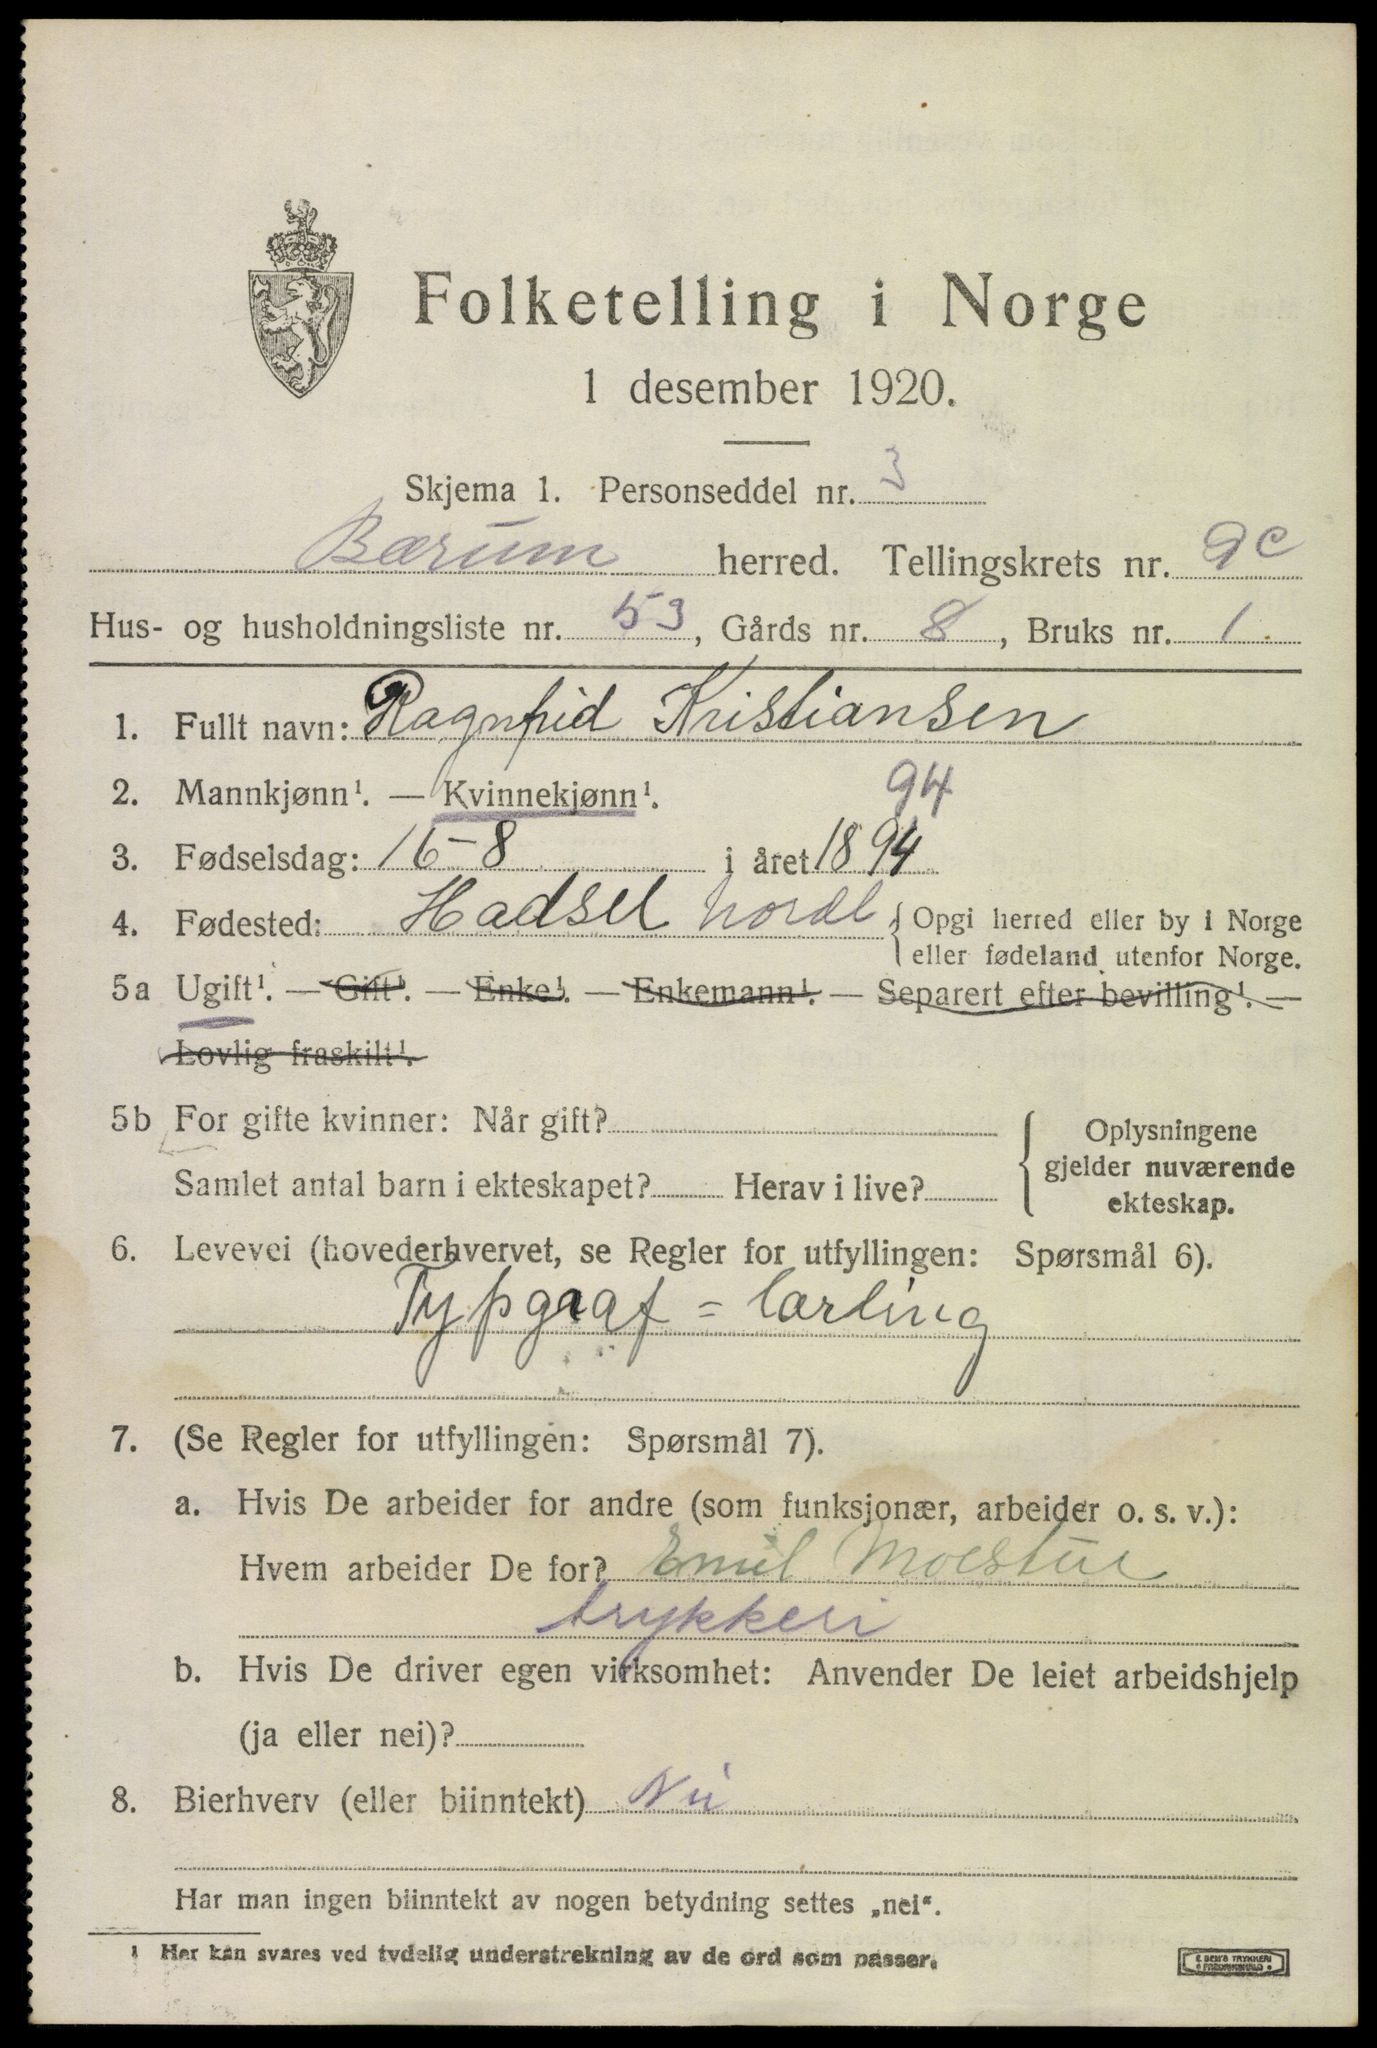 Folketelling i Norge
1 desember 1920.
Skjema 1. Personseddel nr. 3
Bærum herred. Tellingskrets nr. 9c
Hus- og husholdningsliste nr. 53, Gårds nr. 8, Bruks nr. 1
1. Fullt navn: Ragnfrid Kristiansen
2. Mannkjønn¹. — Kvinnekjønn¹. 94
3. Fødselsdag: 16-8 i året 1894
4. Fødested: Hadsel Nordl { Opgi herred eller by i Norge
eller fødeland utenfor Norge.
5a Ugift¹. — Gift¹. — Enke¹. — Enkemann¹. — Separert efter bevilling¹. —
Lovlig fraskilt¹.
5b For gifte kvinner: Når gift?
Samlet antal barn i ekteskapet? Herav i live?
Oplysningene
gjelder nuværende
ekteskap.
6. Levevei (hovederhvervet, se Regler for utfyllingen: Spørsmål 6).
Typgraf = lærling
7. (Se Regler for utfyllingen: Spørsmål 7).
a. Hvis De arbeider for andre (som funksjonær, arbeider o. s. v.):
Hvem arbeider De for? Emil Moestue
trykkeri
b. Hvis De driver egen virksomhet: Anvender De leiet arbeidshjelp
(ja eller nei)?
8. Bierhverv (eller biinntekt) Nei
Har man ingen biinntekt av nogen betydning settes „nei“.
1 Her kan svares ved tydelig understrekning av de ord som passer.
E. SEM'S TRYKKERI
FREDRIKSHALD